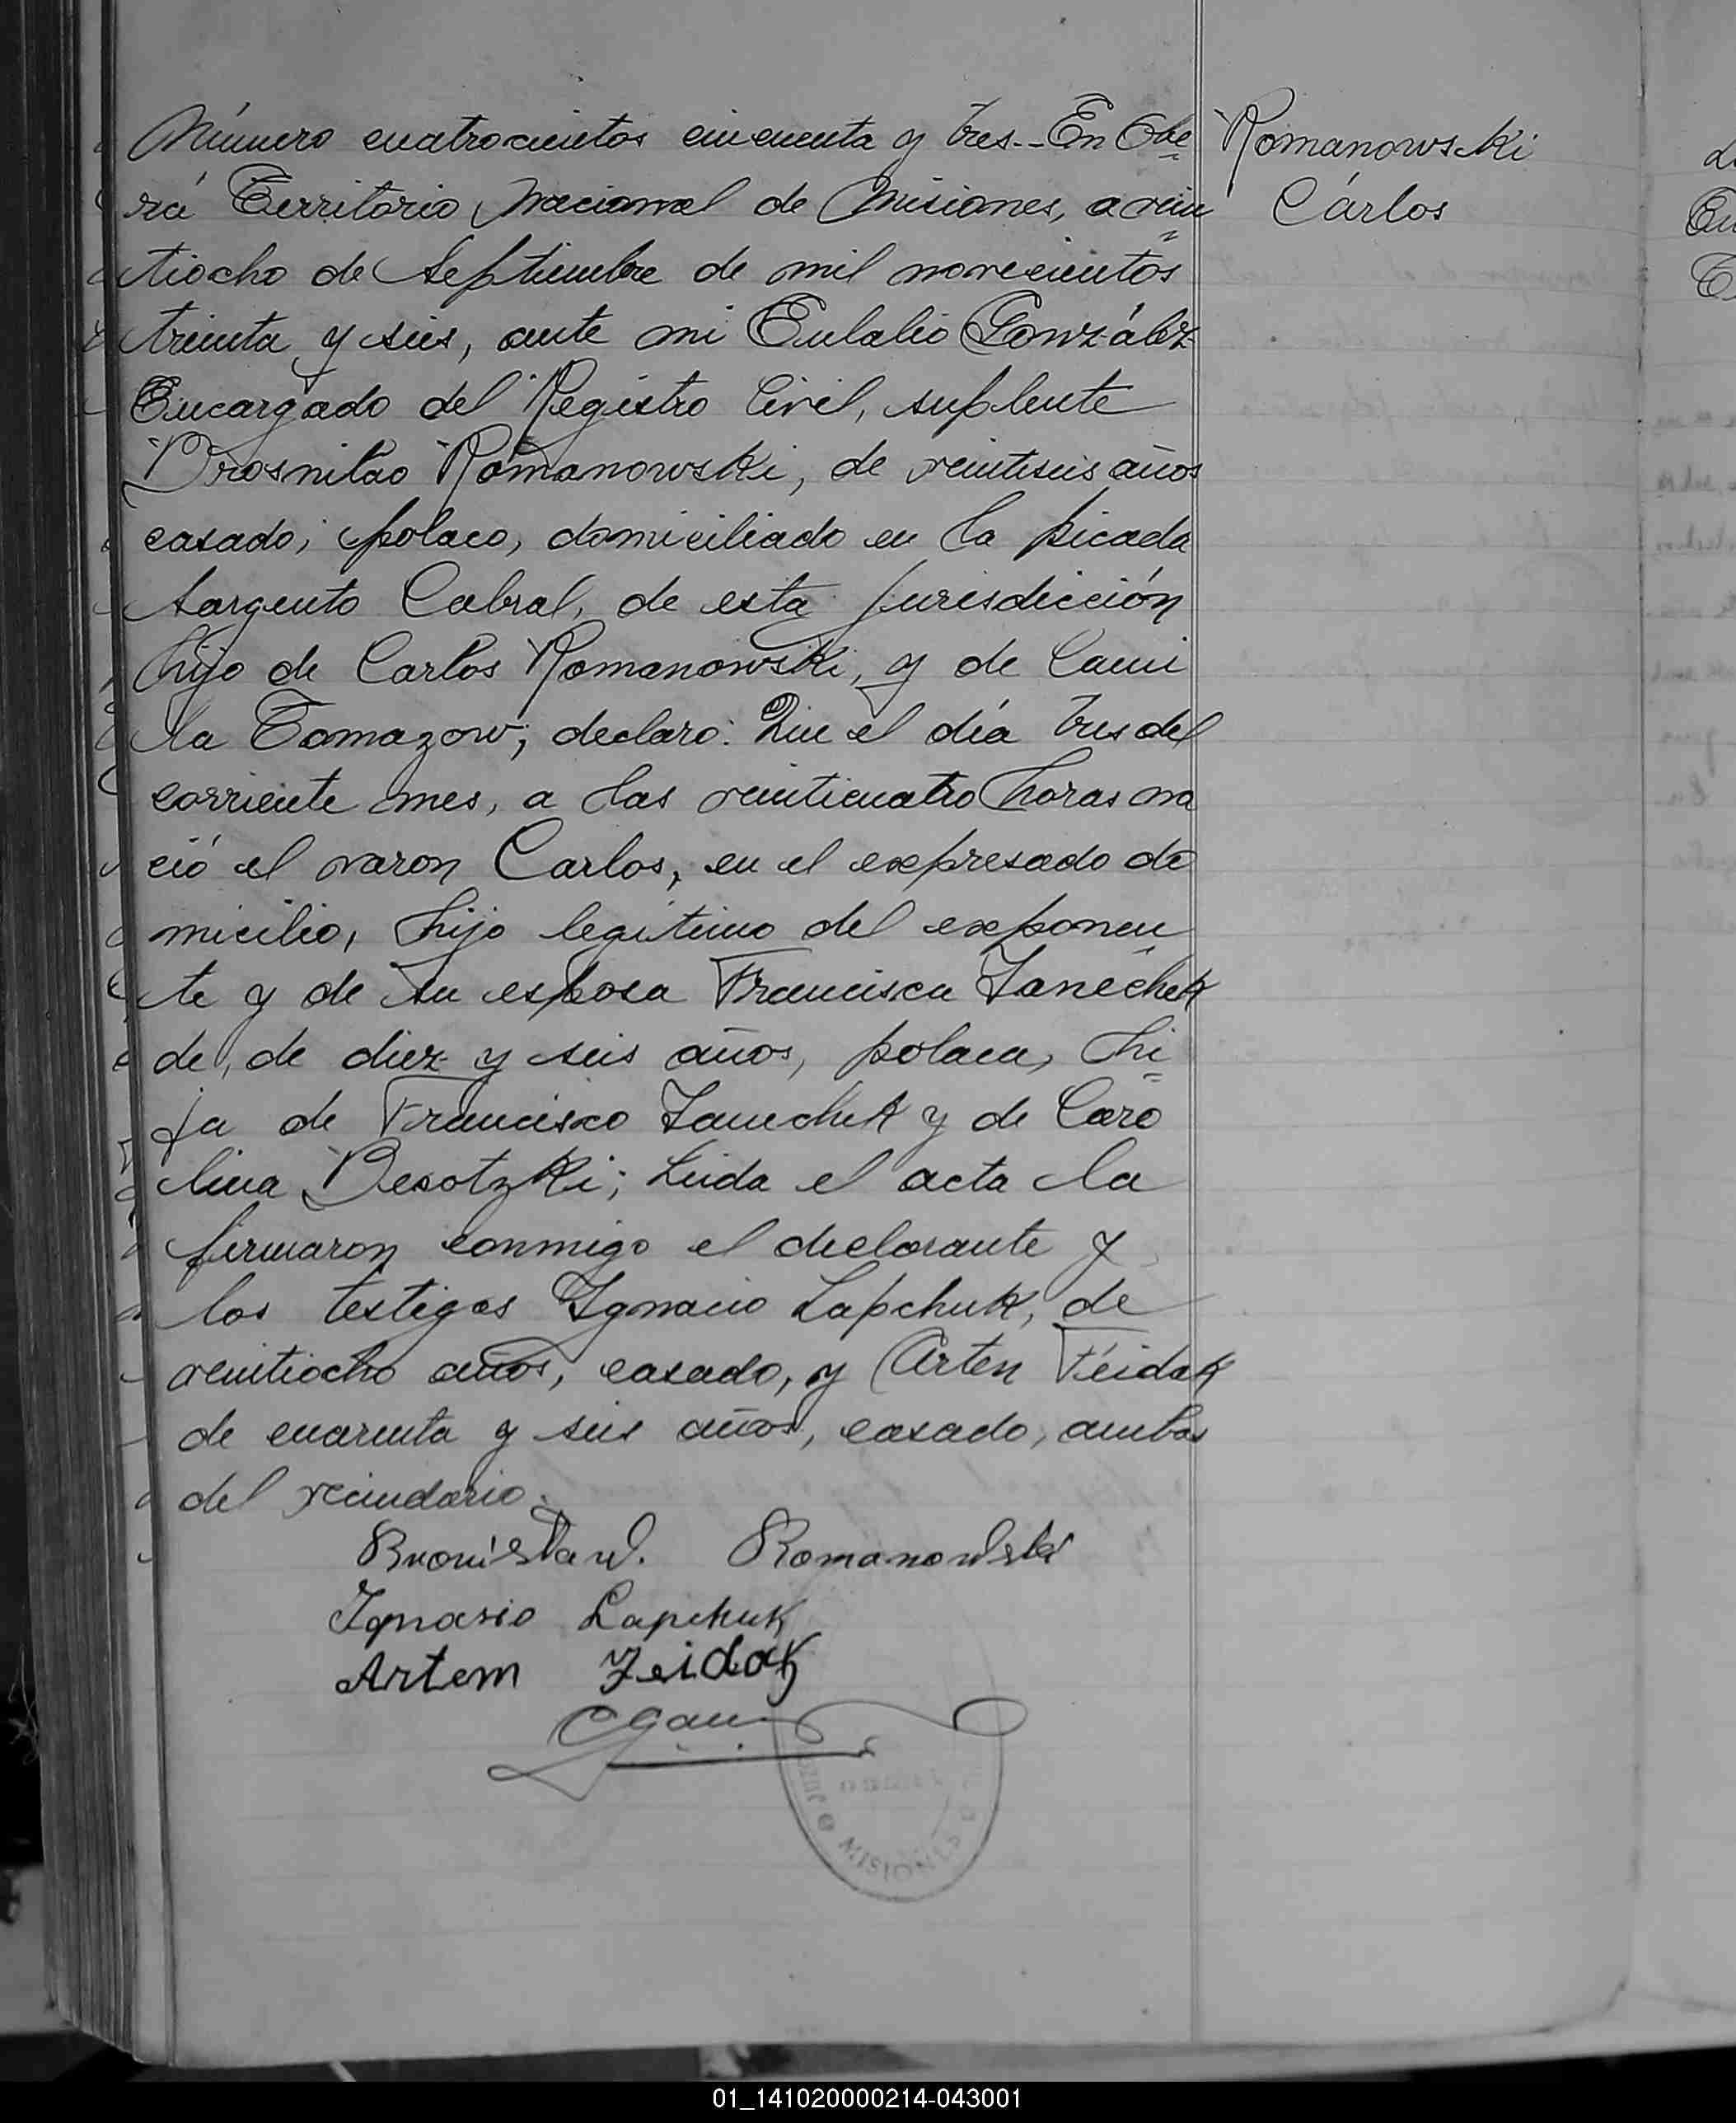 Número cuatrocientos cincuenta y tres.- En Obe=
rá Territorio Nacional de Misiones, a vein=
tiocho de Septiembre de mil novecientos
treinta y seis, ante mi Eulalio González
Encargado del Registro Civil, suplente
Brosnilao Romanowski, de veintiseis años
casado, polaco, domiciliado en la picada
Sargento Cabral, de esta jurisdicción
hijo de Carlos Romanowski, y de Cami
la Tomazow; declaro: Que el día tres del
corriente mes, a las veinticuatro horas na
ció el varon Carlos, en el expresado do
micilio, hijo legítimo del exponen
te y de su esposa Francisca Janechek
de, de diez y seis años, polaca, hi=
ja de Francisco Janechek y de Caro
lina Besotzki; Leida el acta la
firmaron conmigo el declarante y
los testigos Ignacio Lapchuk, de
veintiocho años, casado, y Arten Feidak
de cuarenta y seis años, casado, ambos
del vecindario.
Bronisław. Romanowski
Ignasio Lapchuk
Artem Zeidak
MISIONES
Romanowski
Cárlos
01_141020000214-043001